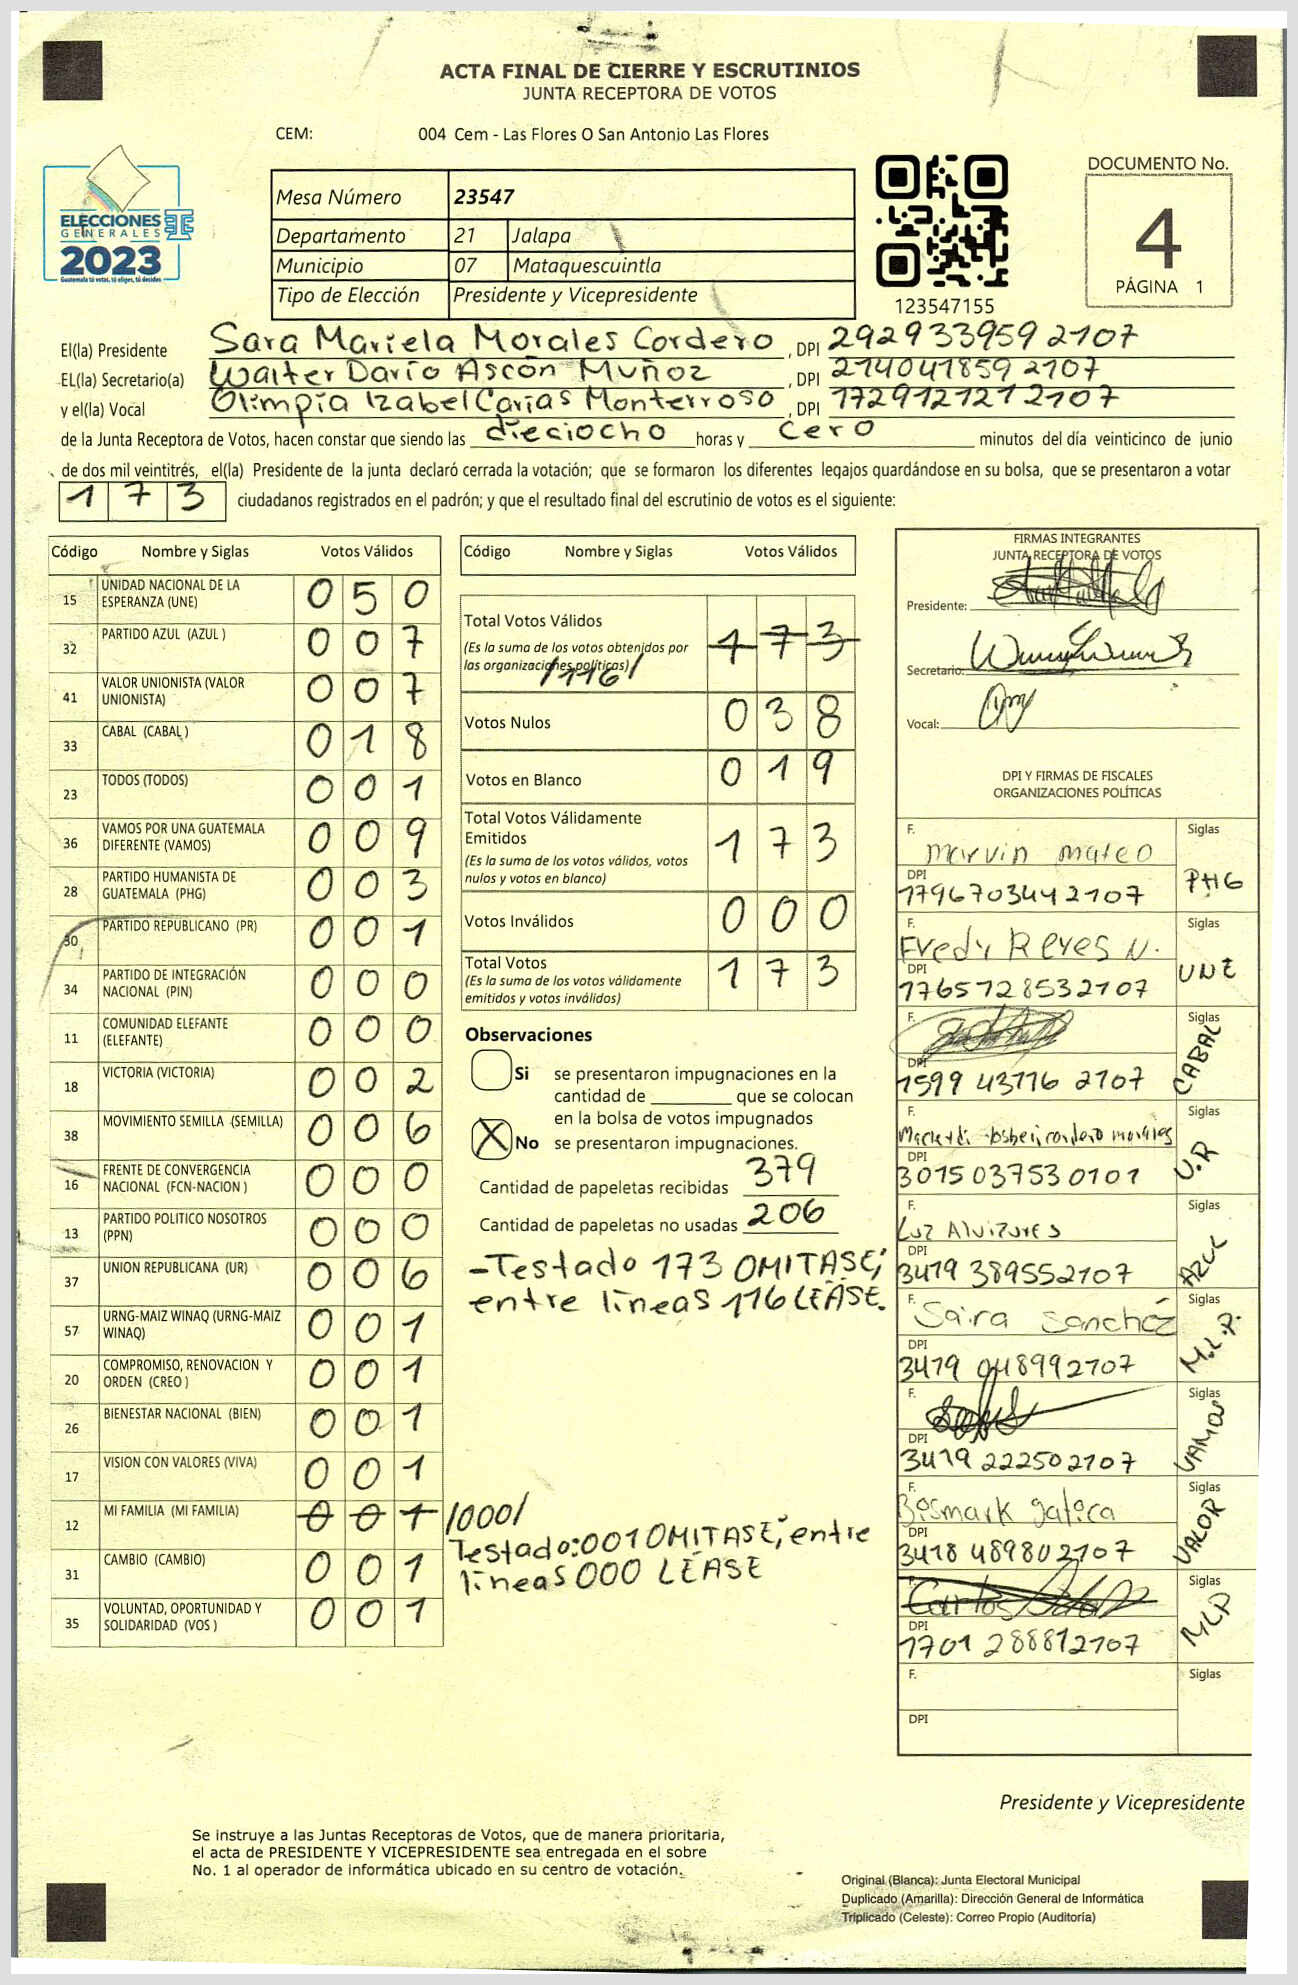 ACTA FINAL DE CIERRE Y ESCRUTINIOS
JUNTA RECEPTORA DE VOTOS
CEM: 004 Cem - Las Flores O San Antonio Las Flores
ELECCIONES
GENERALES
2023
Guatemala tú votas, tú eliges, tú decides
Mesa Número 23547
Departamento 21 Jalapa
Municipio 07 Mataquescuintla
Tipo de Elección Presidente y Vicepresidente
123547155
DOCUMENTO No.
4
PÁGINA 1
El(la) Presidente Sara Mariela Morales Cordero, DPI 2929339592107
EL(la) Secretario(a) Walter Darío Ascón Muñoz, DPI 2140418592107
y el(la) Vocal Olimpia Izabel Carías Monterroso, DPI 1729121212107
de la Junta Receptora de Votos, hacen constar que siendo las dieciocho horas y cero minutos del día veinticinco de junio
de dos mil veintitrés, el(la) Presidente de la junta declaró cerrada la votación; que se formaron los diferentes legajos guardándose en su bolsa, que se presentaron a votar
173 ciudadanos registrados en el padrón; y que el resultado final del escrutinio de votos es el siguiente:
Código Nombre y Siglas Votos Válidos
15 UNIDAD NACIONAL DE LA ESPERANZA (UNE) 050
32 PARTIDO AZUL (AZUL ) 007
41 VALOR UNIONISTA (VALOR UNIONISTA) 007
33 CABAL (CABAL ) 018
23 TODOS (TODOS) 001
36 VAMOS POR UNA GUATEMALA DIFERENTE (VAMOS) 009
28 PARTIDO HUMANISTA DE GUATEMALA (PHG) 003
30 PARTIDO REPUBLICANO (PR) 001
34 PARTIDO DE INTEGRACIÓN NACIONAL (PIN) 000
11 COMUNIDAD ELEFANTE (ELEFANTE) 000
18 VICTORIA (VICTORIA) 002
38 MOVIMIENTO SEMILLA (SEMILLA) 006
16 FRENTE DE CONVERGENCIA NACIONAL (FCN-NACION ) 000
13 PARTIDO POLITICO NOSOTROS (PPN) 000
37 UNION REPUBLICANA (UR) 006
57 URNG-MAIZ WINAQ (URNG-MAIZ WINAQ) 001
20 COMPROMISO, RENOVACION Y ORDEN (CREO ) 001
26 BIENESTAR NACIONAL (BIEN) 001
17 VISION CON VALORES (VIVA) 001
12 MI FAMILIA (MI FAMILIA) 001 /000/
Testado:001 OMITASE; entre
líneas 000 LEASE
31 CAMBIO (CAMBIO) 001
35 VOLUNTAD, OPORTUNIDAD Y SOLIDARIDAD (VOS ) 001
Código Nombre y Siglas Votos Válidos
Total Votos Válidos 173
(Es la suma de los votos obtenidos por
las organizaciones políticas) /116/
Votos Nulos 038
Votos en Blanco 019
Total Votos Válidamente
Emitidos 173
(Es la suma de los votos válidos, votos
nulos y votos en blanco)
Votos Inválidos 000
Total Votos 173
(Es la suma de los votos válidamente
emitidos y votos inválidos)
Observaciones
Si se presentaron impugnaciones en la
cantidad de ________ que se colocan
en la bolsa de votos impugnados
X No se presentaron impugnaciones.
Cantidad de papeletas recibidas 379
Cantidad de papeletas no usadas 206
-Testado 173 OMITASE;
entre líneas 116 LEASE.
FIRMAS INTEGRANTES
JUNTA RECEPTORA DE VOTOS
Presidente:
Secretario:
Vocal:
DPI Y FIRMAS DE FISCALES
ORGANIZACIONES POLÍTICAS
F. Marvin Mateo Siglas
DPI 1796703442107 PHG
F. Fredy Reyes N. Siglas
DPI 1765128532107 UNE
F.
DPI 1599 43116 2107 CABAL
F. cordero morales Siglas
DPI 3015037530101 U.R
F. Luz Alvizures Siglas
DPI 3419 389552107 AZUL
F. Saira Sanchéz Siglas
DPI 3419 048992107 M.L.P.
F. Siglas
DPI 3419 222502107 VAMOS
F. Bismark gatica Siglas
DPI 3418 489802107 VALOR
F. Carlos Siglas
DPI 1701 288812107 MLP
F. Siglas
DPI
Presidente y Vicepresidente
Se instruye a las Juntas Receptoras de Votos, que de manera prioritaria,
el acta de PRESIDENTE Y VICEPRESIDENTE sea entregada en el sobre
No. 1 al operador de informática ubicado en su centro de votación.
Original (Blanca): Junta Electoral Municipal
Duplicado (Amarilla): Dirección General de Informática
Triplicado (Celeste): Correo Propio (Auditoría)